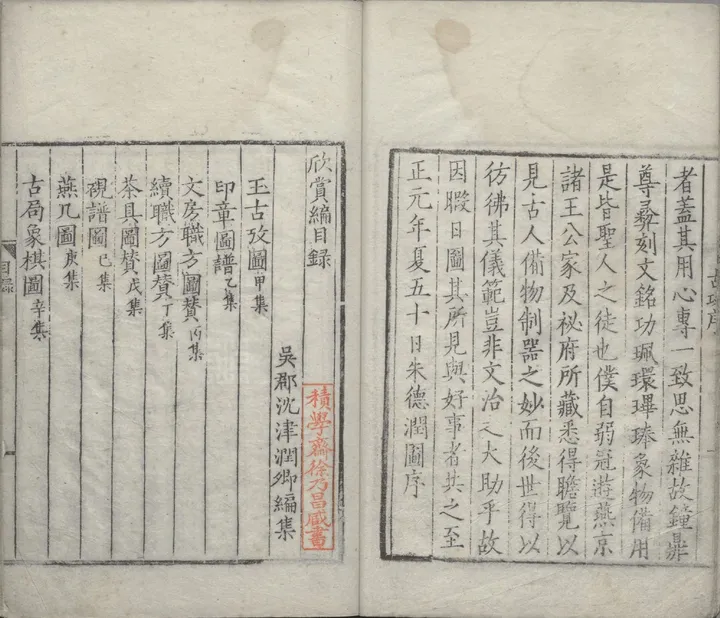 者蓋其用心專一致思無雜故鐘鼎
尊彞刻文銘功珮環琕琫象物備用
是皆聖人之徒也僕自弱冠遊燕京
諸王公家及祕府所藏悉得瞻覽以
見古人備物制器之妙而後世得以
彷彿其儀範豈非文治之大助乎故
因暇日圖其所見與好事者共之至
正元年夏五十日朱德潤圖序
欣賞編目錄
吳郡沈津潤卿編集
積學齋徐乃昌藏書
玉古攷圖 甲集
印章圖譜 乙集
文房職方圖贊 丙集
續職方圖贊 丁集
茶具圖贊 戊集
硯譜圖 巳集
燕几圖 庚集
古局象棋圖 辛集
目錄